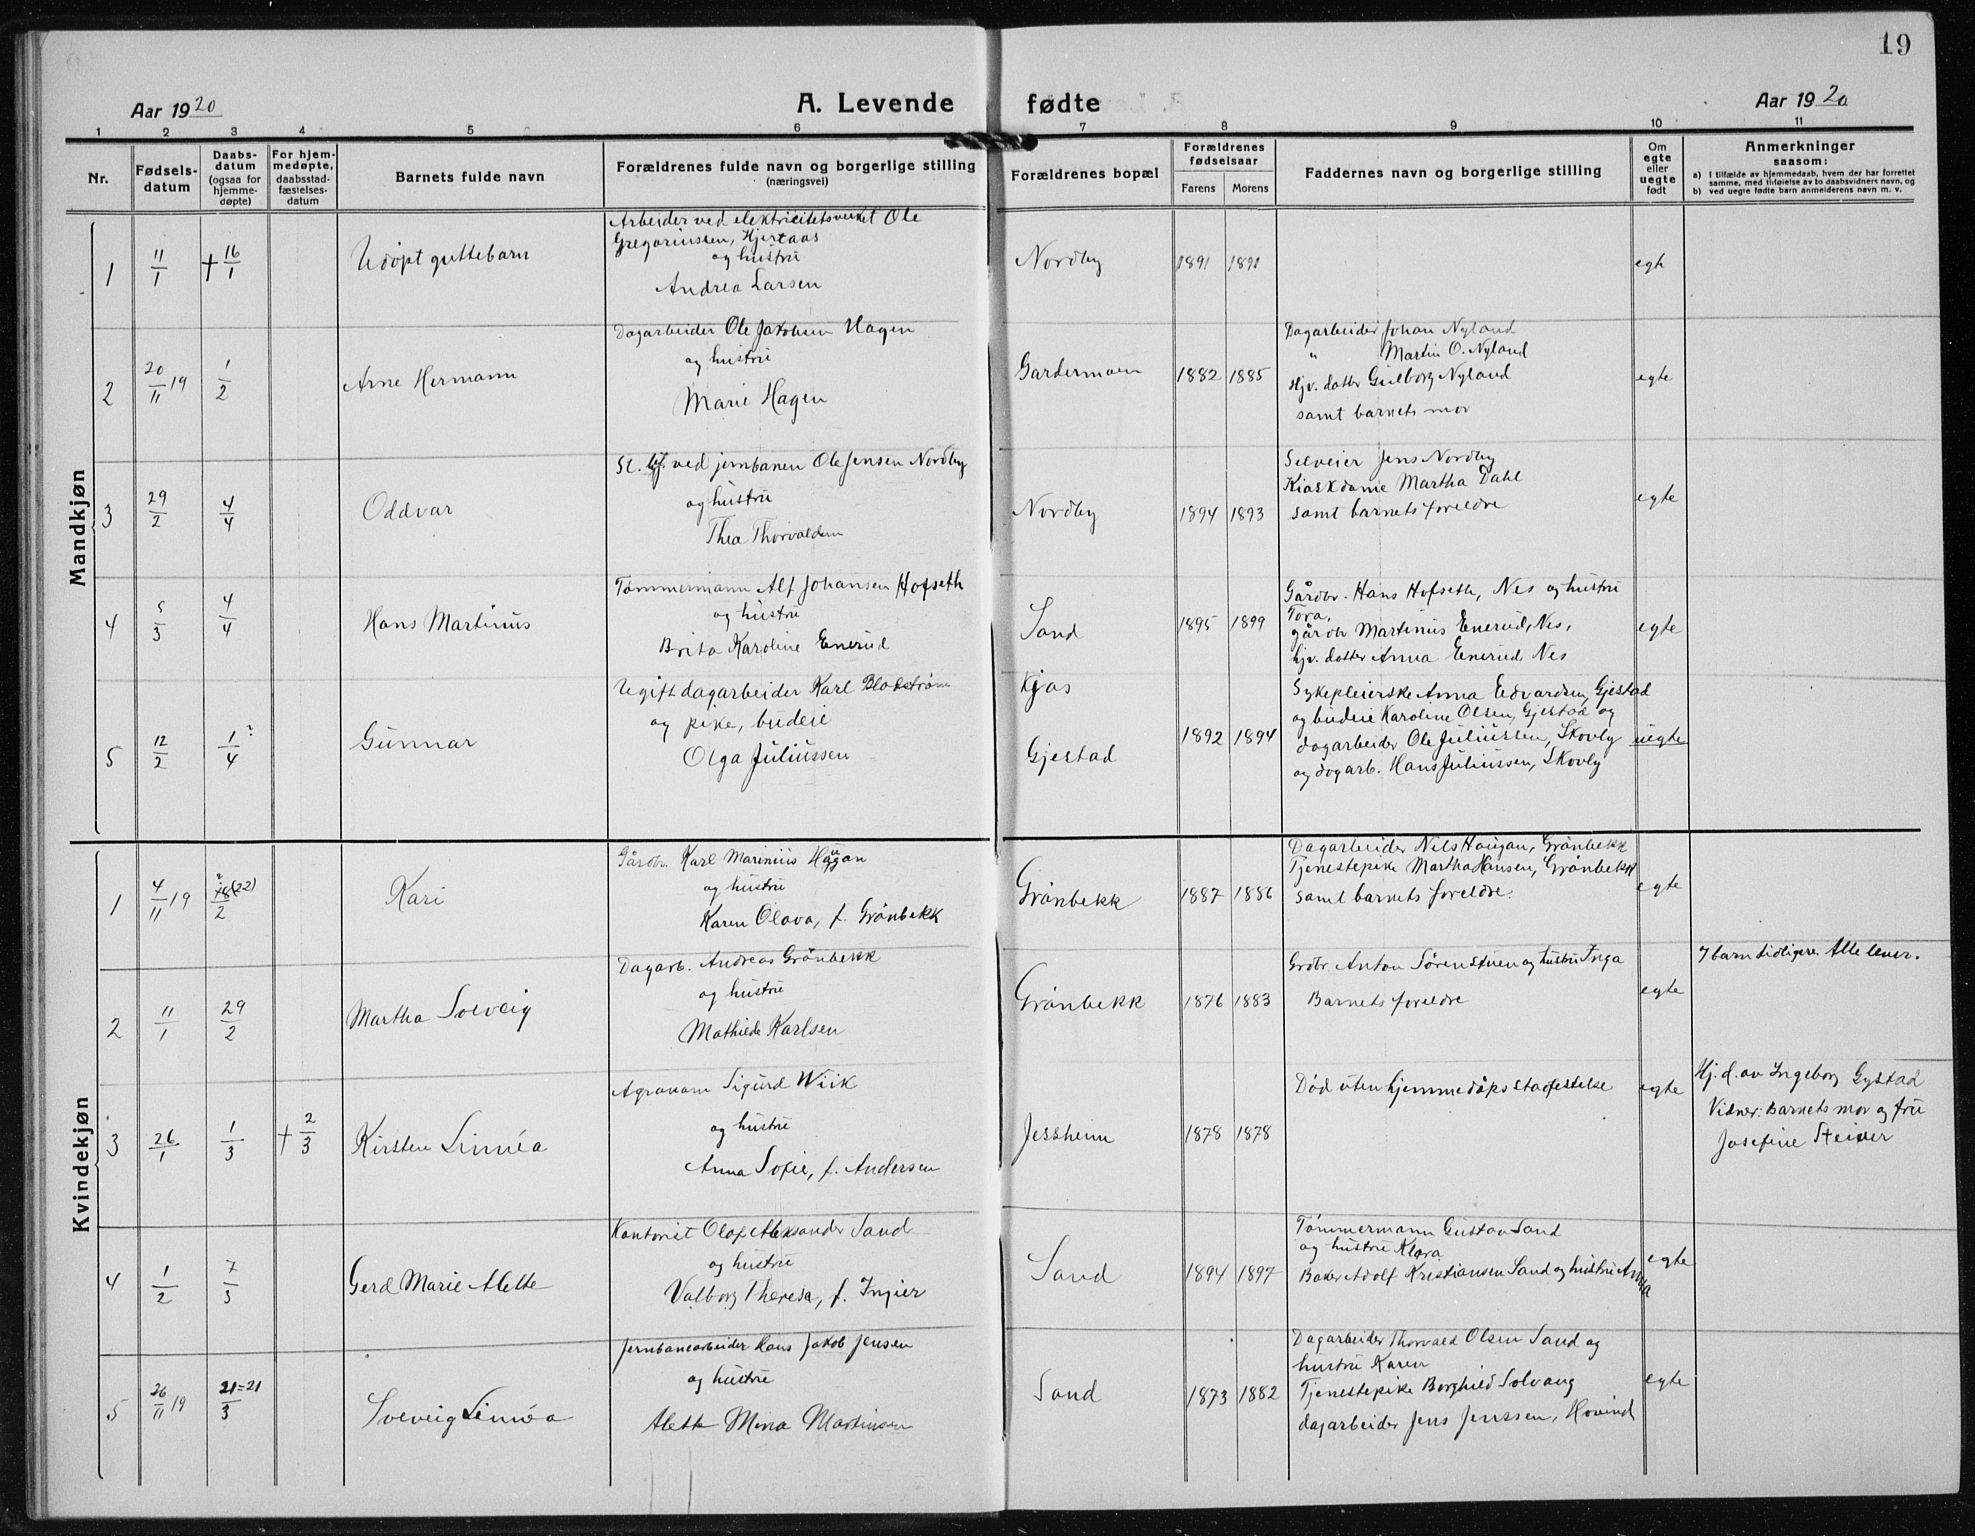 19
Aar 1920
A. Levende fødte
Aar 1920
1 2 3 4 5 6 7 8 9 10 11
Nr.
Fødsels-
datum
Daabs-
datum
(ogsaa for
hjemme-
døpte)
For hjem-
medøpte,
daabsstad-
fæstelses-
datum
Barnets fulde navn
Forældrenes fulde navn og borgerlige stilling
(næringsvei)
Forældrenes bopæl
Forældrenes
fødselsaar
Farens Morens
Faddernes navn og borgerlige stilling
Om
egte
eller
uegte
født
Anmerkninger
saasom:
a) I tilfælde av hjemmedaab, hvem der har forrettet
samme, med tilføielse av to daabsvidners navn, og
b) ved uegte fødte barn anmelderens navn m. v.
Mandkjøn
1
11/1
† 16/1
Udøpt guttebarn
Arbeider ved elektricitetsverket Ole
Gregoriussen, Hjertaas
og hustru
Andrea Larsen
Nordby
1891 1891
egte
2
20/11 19
1/2
Arne Hermann
Dagarbeider Ole Jakobsen Hagen
og hustru
Marie Hagen
Gardermoen
1882 1885
Dagarbeider Johan Nyland
" Martin O. Nyland
Hjv. datter Gulborg Nyland
samt barnets mor
egte
3
29/2
4/4
Oddvar
St. bgf. ved jernbanen Ole Jensen Nordby
og hustru
Thea Thorvaldsen
Nordby
1894 1893
Selveier Jens Nordby
Kioskdame Martha Dahl
samt barnets foreldre
egte
4
5/3
4/4
Hans Martinus
Tømmermann Alf Johansen Hofseth
og hustru
Brita Karoline Enerud
Sand
1895 1899
Gårdbr. Hans Hofseth, Nes og hustru
Tora,
gårdbr Martinus Enerud, Nes,
hjv. datter Anna Enerud, Nes
egte
5
12/2
1/4 ?
Gunnar
Ugift dagarbeider Karl Blokstrøm
og pike, budeie
Olga Juliussen
Kjos
Gjestad
1892 1894
Sykepleierske Anna Edvardsen, Gjestad
og budeie Karoline Olsen, Gjestad og
dagarbeider Ole Juliussen, Skovly
og dogarb. Hans Juliussen, Skovly
uegte
Kvindekjøn
1
4/11 19
? 18(22)/2
Kari
Gårdbr. Karl Marinius Haugan
og hustru
Karen Olava, f. Grønbekk
Grønbekk
1887 1886
Dagarbeider Nels Haugan, Grønbekk
Tjenestepike Martha Hansen, Grønbekk
samt barnets foreldre.
egte
2
11/1
29/2
Martha Solveig
Dagarb. Andreas Grønbekk
og hustru
Mathilde Karlsen
Grønbekk
1876 1883
Grdbr Anton Sørenstuen og hustru Inga
Barnets foreldre
egte
7 barn tidligere. Alle lever.
3
26/1
1/3
† 2/3
Kirsten Linnéa
Agronom Sigurd Wiik
og hustru
Anna Sofie, f. Andersen
Jessheim
1878 1878
Død uten hjemmedåpsstadfestelse
egte
Hj. d. av Ingeborg Gystad
Vidner: Barnets mor og fru
Josefine Steiner
4
1/2
7/3
Gerd Marie Alette
Kontorist Olaf Aleksander Sand
og hustru
Valborg Theresa, f. Ingier
Sand
1894 1897
Tømmermann Gustav Sand
og hustru Klara
Baker Adolf Kristiansen Sand og hustru Anna
egte
5
26/11 19
21=21/3
Solveig Linnéa
Jernbanearbeider Hans Jakob Jensen
og hustru
Alette Mina Martinsen
Sand
1873 1882
Dagarbeider Thorvald Olsen Sand og
hustru Karen
Tjenestepike Borghild Solvang
dagarbeider Jens Jenssen, Hovind
egte